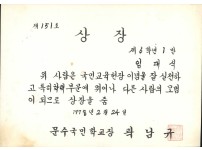 제151호
상장
제6학년1반
임대식
위 사람은 국민교육헌장 이념을 잘 실천하
고 특히 부문에 뛰어나 다른 사람의 모범
이 되므로 상장을 줌
197 년 2월 24일
문수국민학교장 곽남규